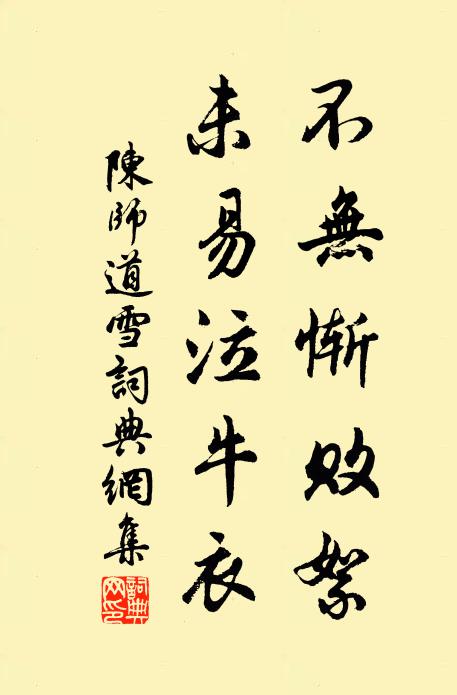 不無慚敗絮
未易泣牛衣
陳師道雪詞典網集
詞典網印